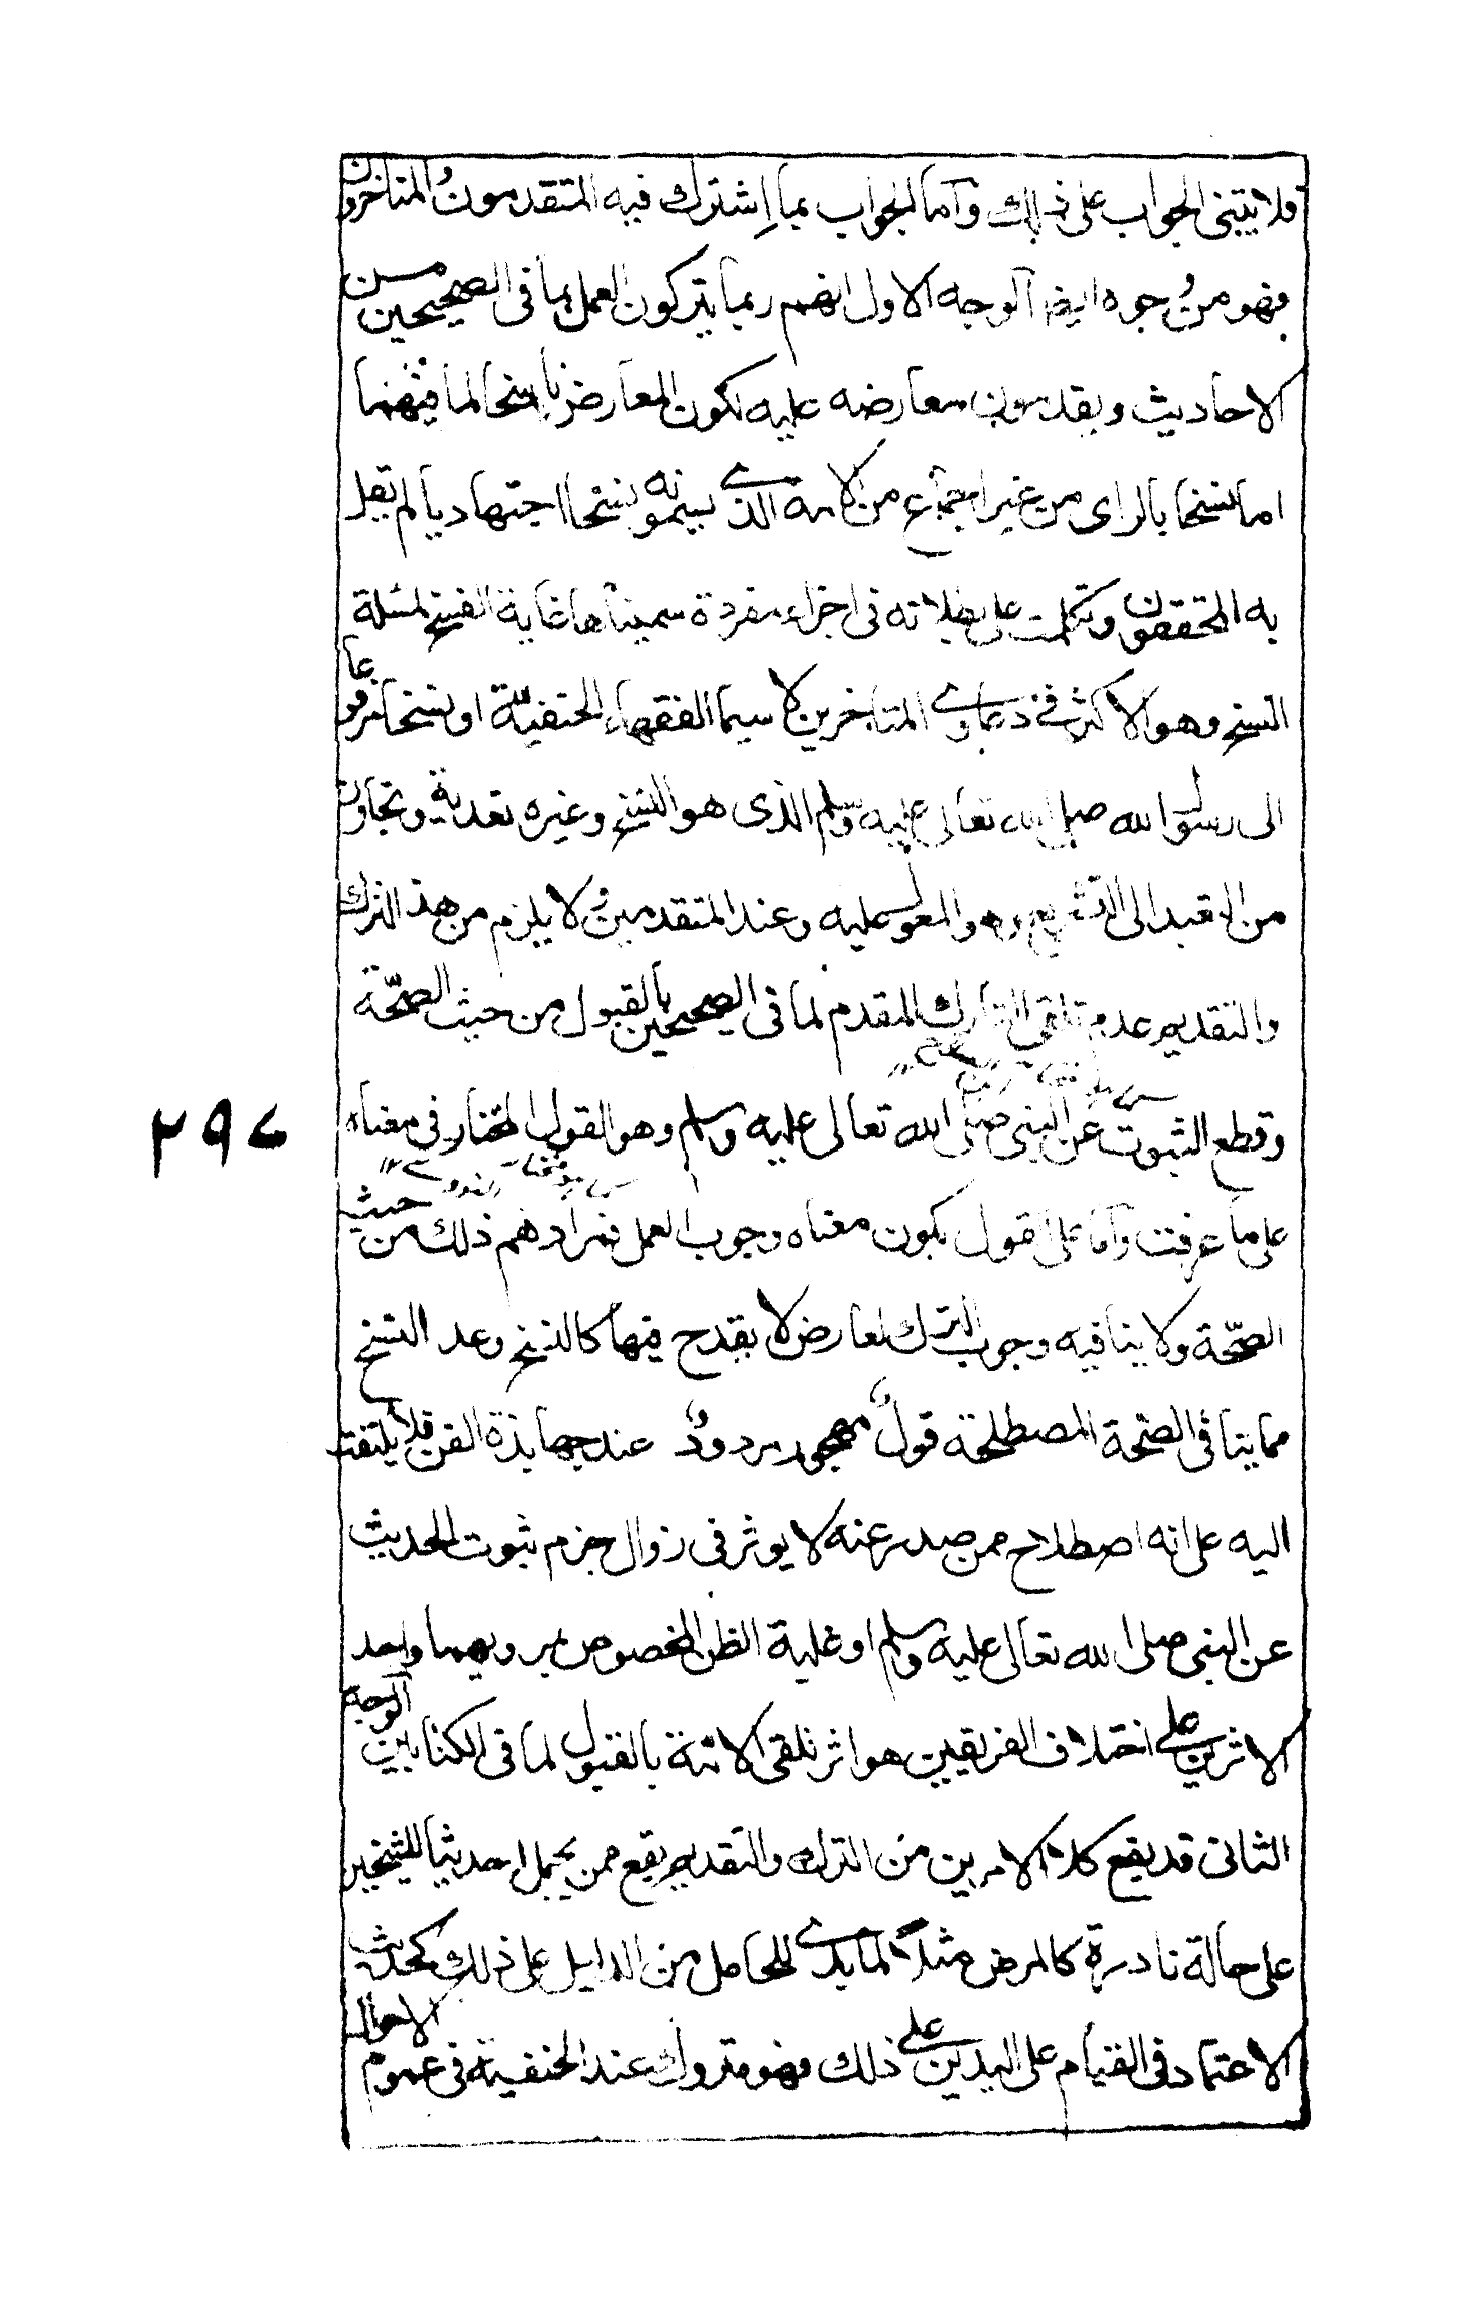 فلا يبتنى الجواب على ذلك وآما الجواب بما إشترك فيه المتقدمون والمتاخرون
فهو من وجوه ايضا آلوجه الاول انهم ربما يتركون العمل بما فى الصحيحين من
الاحاديث ويقدمون معارضه عليه لكون المعارض ناسخا لما فيهما
اما نسخا بالراى من غير اجماع من الامة الذى يسمونه نسخا اجتهاديا لم يقل
به المحققون وتكلمت على بطلانه فى اجزاء مفردة سميناها غاية الفسخ لمسئلة
النسخ وهو الاكثر فى دعاوى المتاخرين لا سيما الفقهاء الحنفية او نسخا مرفوعا
الى رسول الله صلى الله تعالى عليه وسلم الذى هو النسخ وغيره تعدية وتجاوز
من التعبد الى التشريع وهو المعول عليه وعند المتقدمين لا يلزم من هذا الترك
والتقديم عدم تلقى التارك المقدم لما فى الصحيحين بالقبول من حيث الصحّة
وقطع الثبوت عن النبى صلى الله تعالى عليه وسلم وهو القول المختار فى معناه
على ما عرفت وآما على القول بكون معناه وجوب العمل فمرادهم ذلك من حيث
الصحّة ولا ينافيه وجوب الترك لمعارض لا يقدح فيها كالنسخ وعد النسخ
مما ينافى الصحّة المصطلحة قولٌ مهجور مردودٌ عند جهابذة الفن فلا يلتفت
اليه على انه اصطلاح ممن صدر عنه لا يوثر فى زوال جزم ثبوت الحديث
عن النبى صلى الله تعالى عليه وسلم او غلبة الظن المخصوص بمرويهما واحد
الاثرين على اختلاف الفريقين هو اثر تلقى الائمة بالقبول لما فى الكتابين آلوجه
الثانى قد يقع كلا الامرين من الترك والتقديم يقع ممن يحمل احديثا للشيخين
على حالة نادرة كالمرض مثلاً لما بدى للحامل من الدليل على ذلك كحديث
الاعتماد فى القيام على اليدين على ذلك فهو متروك عند الحنفية فى عموم الاحوال
٢٩٧